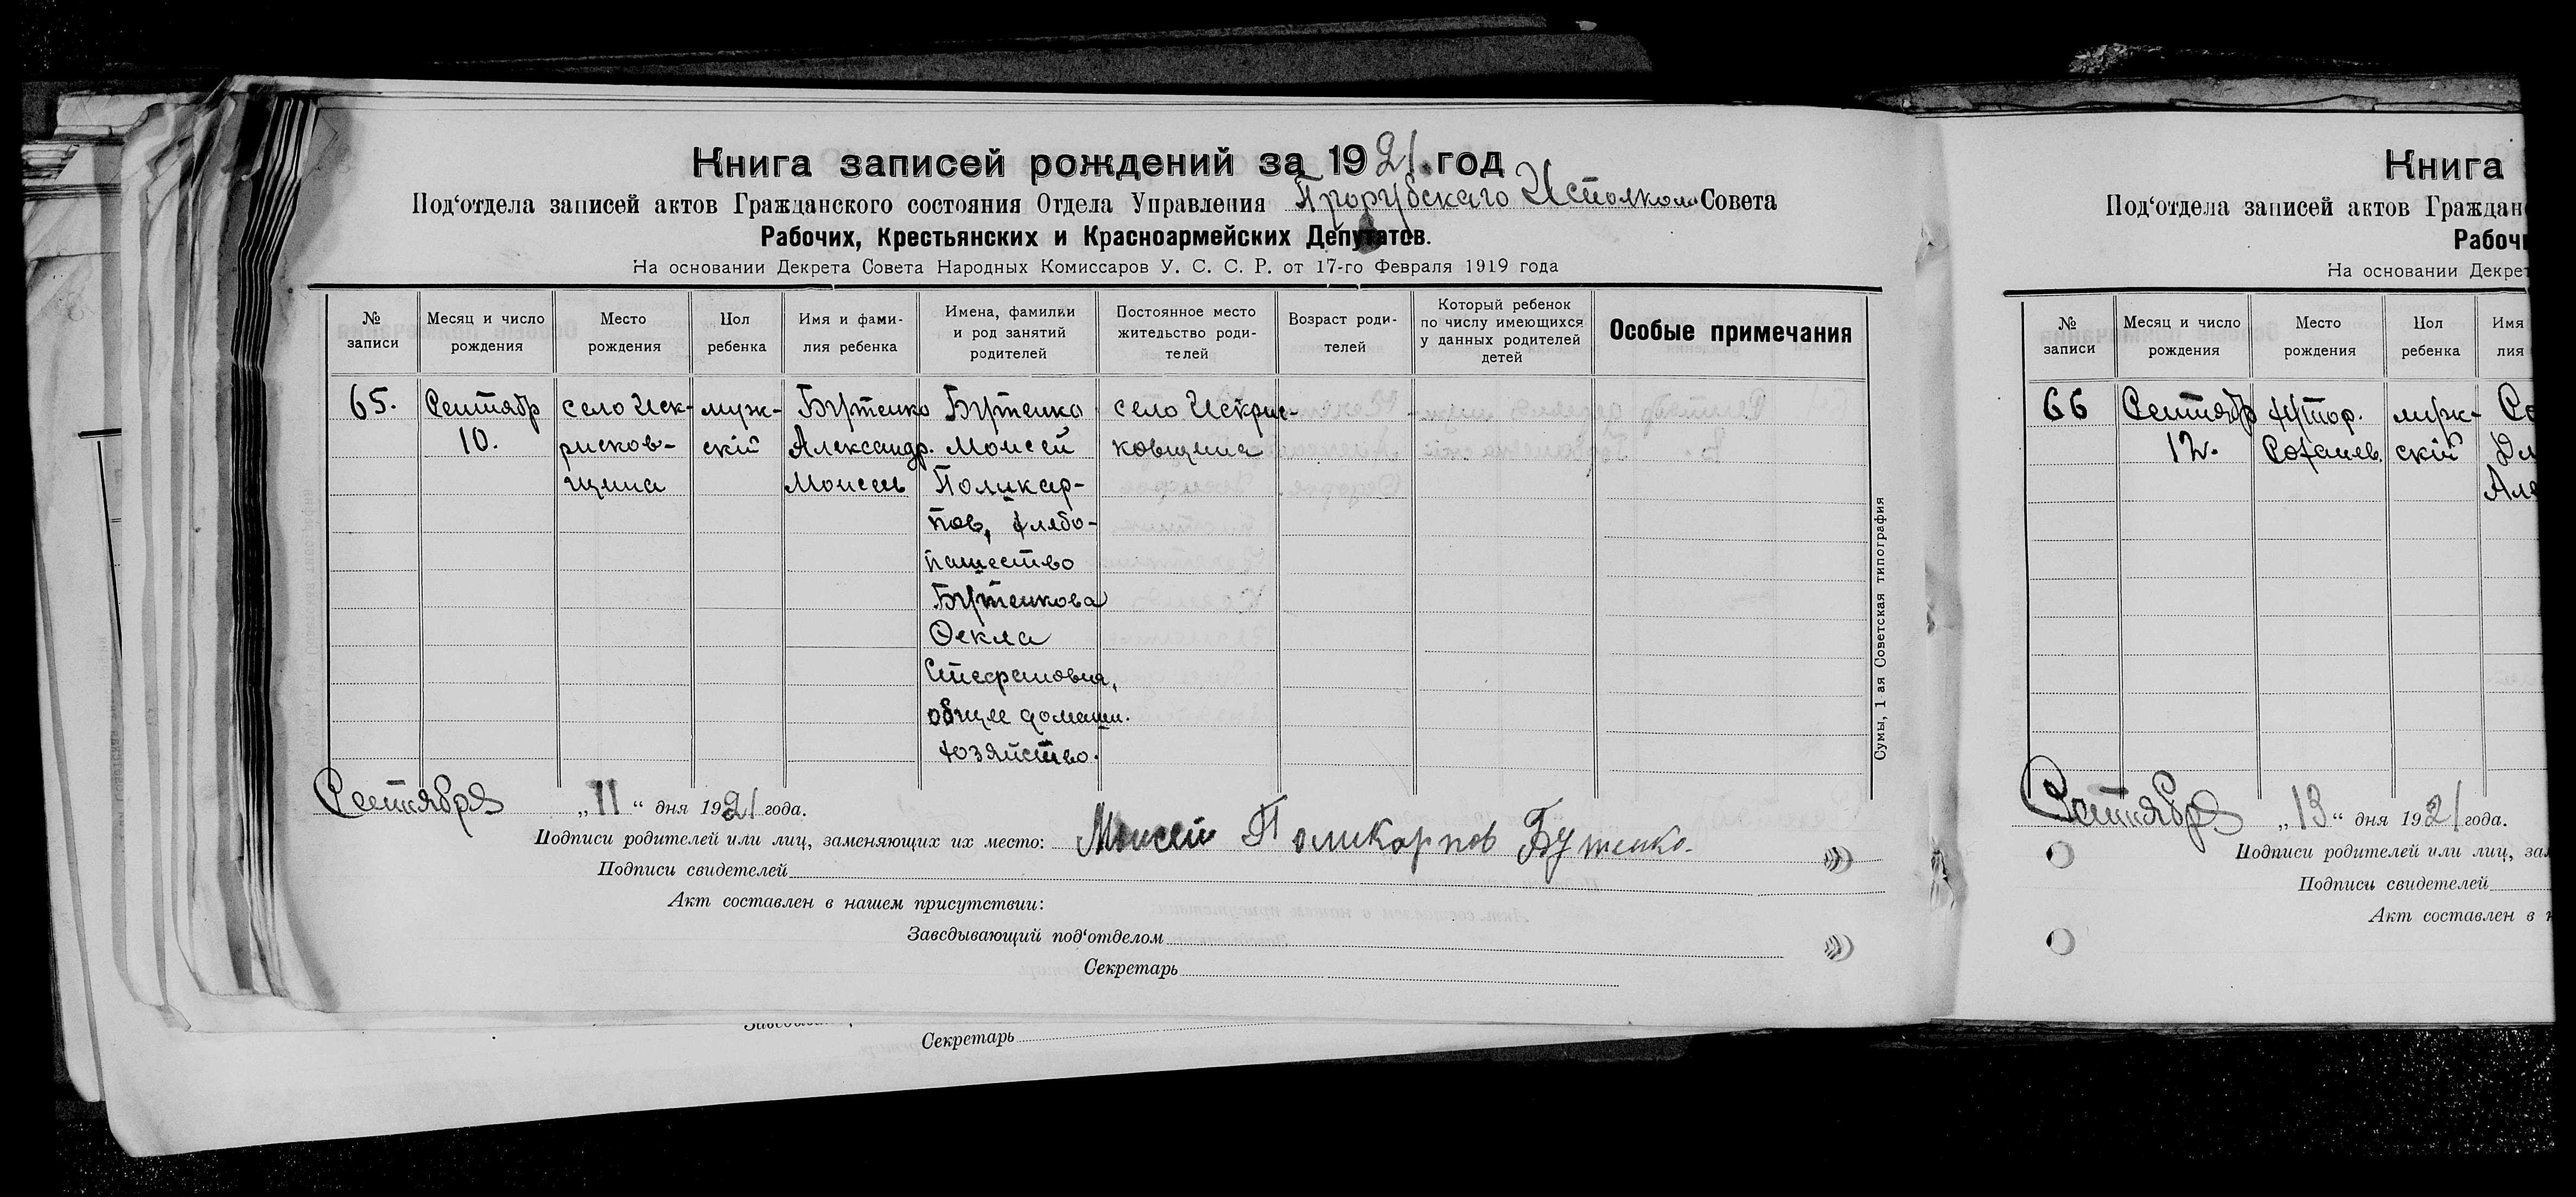 Книга записей рождений за 1921 год
Под‘отдела записей актов Гражданского состояния Отдела Управления Прорубского Исполкома Совета
Рабочих, Крестьянских и Красноармейских Депутатов.
На основании Декрета Совета Народных Комиссаров У. С. С. Р. от 17-го Февраля 1919 года
№ записи
Месяц и число рождения
Место рождения
Пол ребенка
Имя и фами-
лия ребенка
Имена, фамилии
и род занятий
родителей
Постоянное место
жительство роди-
телей
Возраст роди-
телей
Который ребенок
по числу имеющихся
у данных родителей
детей
Особые примечания
65.
Сентябр
10.
село Иск-
рисков-
щина
муж-
скій
Бутенко
Александр.
Моисеев
Бутенко
Моисей
Поликар-
пов, хлебо-
пашество
Бутенкова
Ѳекла
Стефановна,
общее домашн.
хозяйство.
село Искрис-
ковщина
Сумы, 1-ая Советская типография
Сентября „11“ дня 1921 года.
Подписи родителей или лиц, заменяющих их место: Моисей Поликарпов Бутенко.
Подписи свидетелей
Акт составлен в нашем присутствии:
Заведывающий под‘отделом
Секретарь
Секретарь
Книга
Под‘отдела записей актов Граждан
Рабочи
На основании Декрет
№ записи
Месяц и число рождения
Место рождения
Пол ребенка
Имя
лия
66
Сентябр
12.
хутор.
муж-
скій
Але
Сентября „13“ дня 1921 года.
Подписи родителей или лиц, зам
Подписи свидетелей
Акт составлен в н